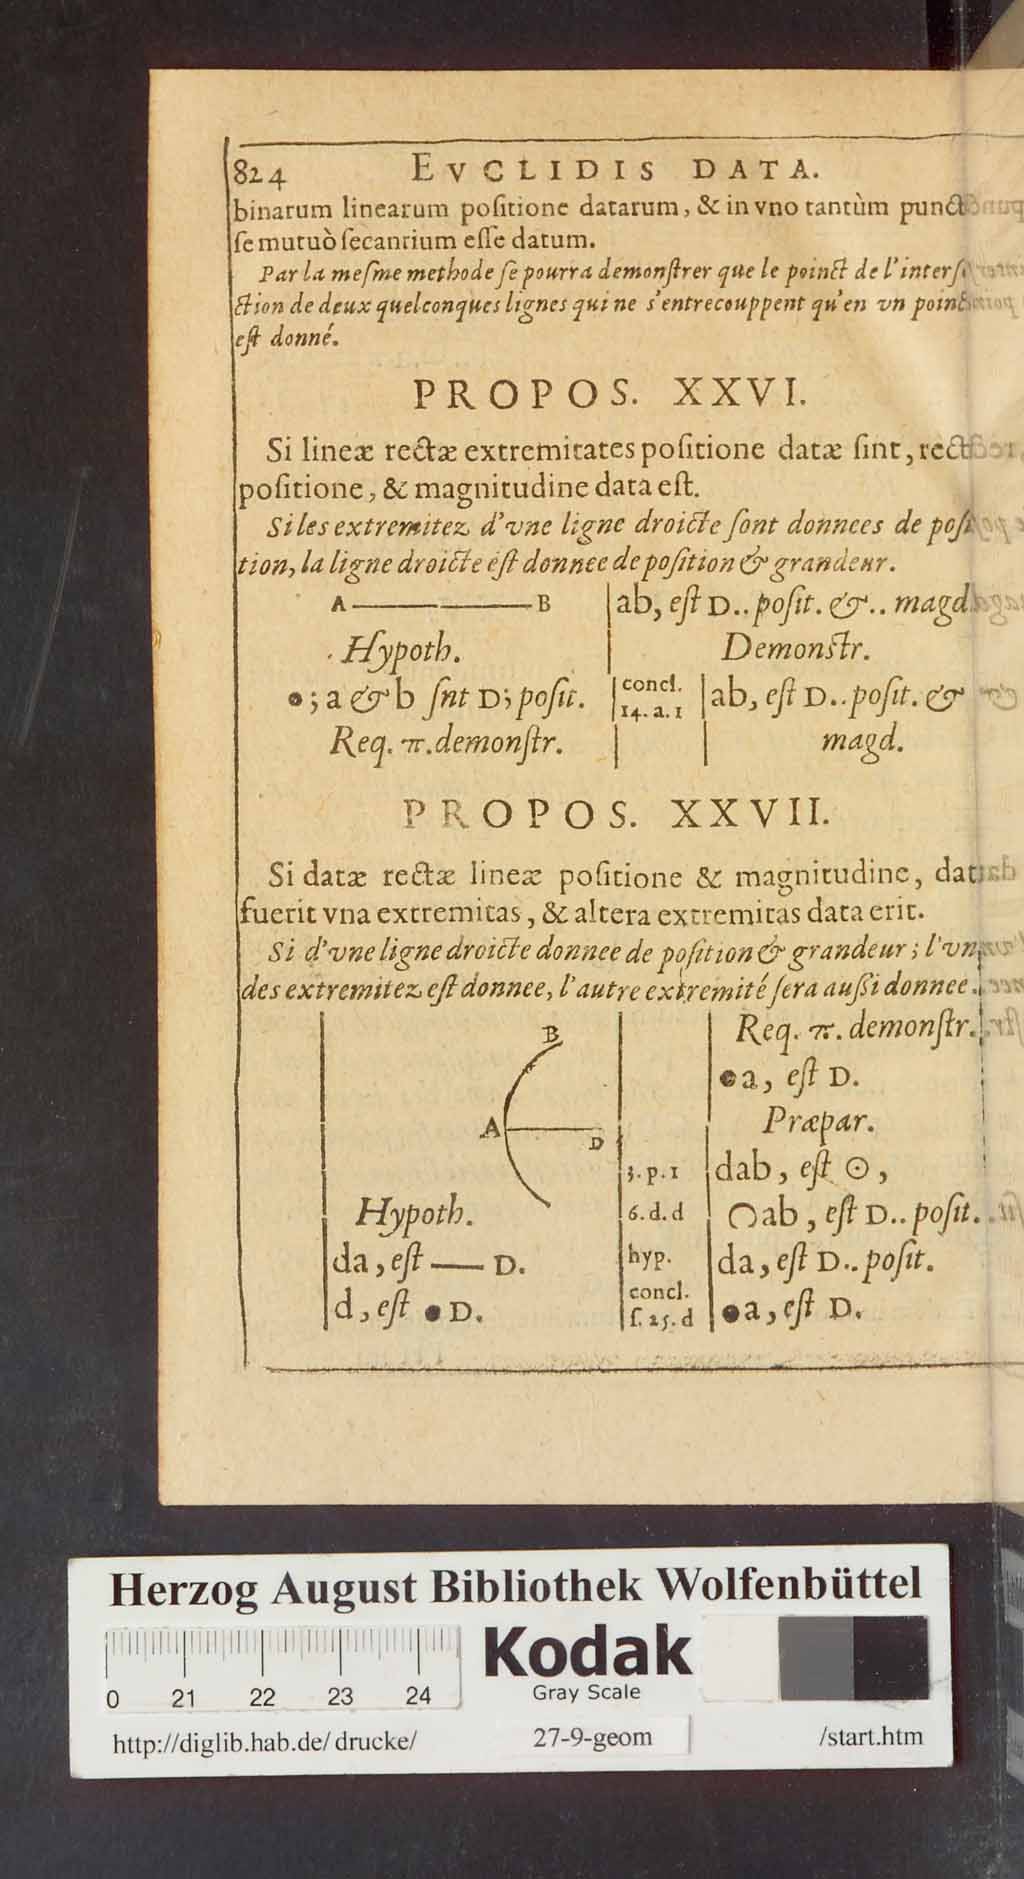 824 EVCLIDIS DATA.
binarum linearum positione datarum, & in vno tantùm punct
se mutuò secantium esse datum.
Par la mesme methode se pourra demonstrer que le poinct de l'inters
ction de deux quelconques lignes qui ne s'entrecouppent qu'en vn poinct
est donné.
PROPOS. XXVI.
Si lineæ rectæ extremitates positione datæ sint, rect
positione, & magnitudine data est.
Si les extremitez d'vne ligne droicte sont donnees de posi
tion, la ligne droicte est donnee de position & grandeur.
A B
ab, est D.. posit. &.. magd
Hypoth.
Demonstr.
●; a & b snt D; posit.
concl.
14. a. 1
ab, est D.. posit. &
Req. π. demonstr.
magd.
PROPOS. XXVII.
Si datæ rectæ lineæ positione & magnitudine, dat
fuerit vna extremitas, & altera extremitas data erit.
Si d'vne ligne droicte donnee de position & grandeur; l'vn
des extremitez est donnee, l'autre extremité sera aussi donnee.
B
A
D
Hypoth.
da, est — D.
d, est ● D.
Req. π. demonstr.
●a, est D.
Præpar.
3. p. 1 dab, est ⊙,
6. d. d ◠ab, est D.. posit.
hyp. da, est D.. posit.
concl.
f. 25. d ●a, est D.
Herzog August Bibliothek Wolfenbüttel
0 21 22 23 24
Kodak
Gray Scale
http://diglib.hab.de/drucke/ 27-9-geom /start.htm